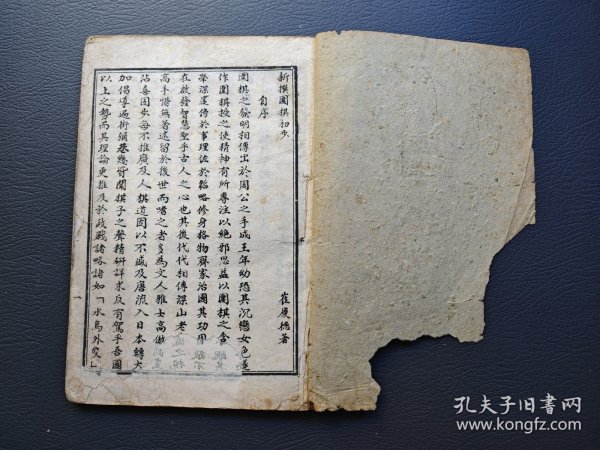 新撰圍棋初步　崔慶德著
自序
圍棋之發明相傳出於周公之手成王年幼恐其沉戀女色遂
作圍棋授之使精神有所專注以絕邪思益以圍棋之含
深邃侔於事理依於韜略修身格物齊家治國其功用
在啟發智慧聖乎古人之心也其後代代相傳深山老
高手惜無著述留於後世而嗜之者多為文人雅士高傲
沾喜固步每不推廣及人棋道因以不盛及唐流入日本轉大
加倡導遍術鎮巷懸聞棋子之聲精研詳求反有駕乎吾國
以上之勢而其理論更推及於政戰諸略諸如「水鳥外交」
孔夫子旧书网
www.kongfz.com